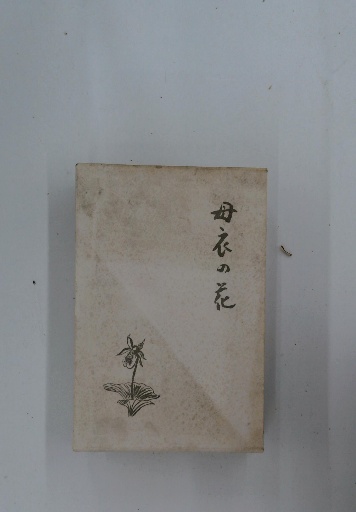 母衣の花